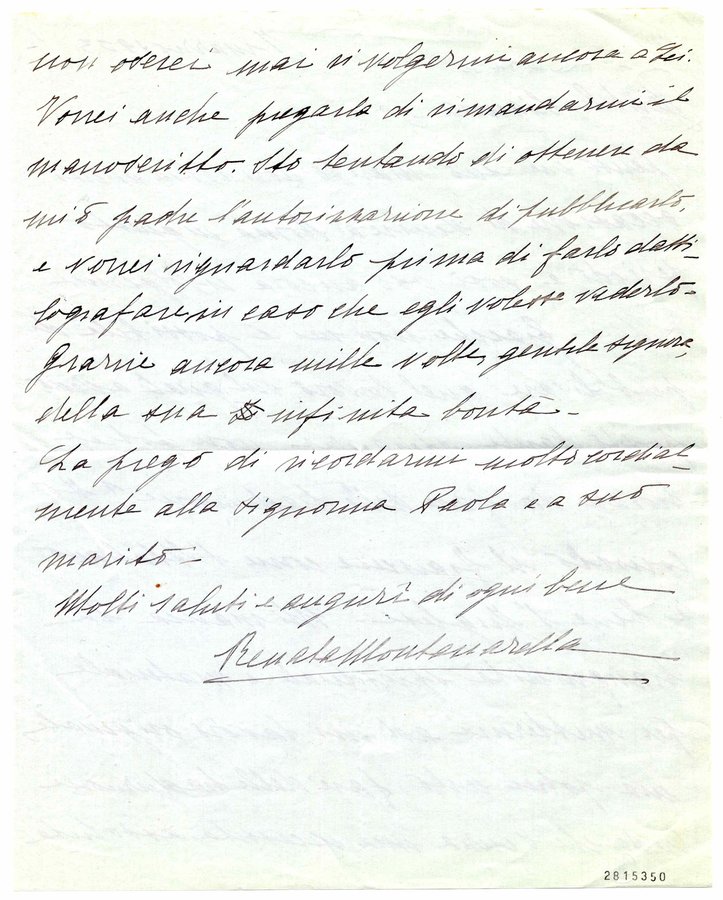 non oserei mai rivolgermi ancora a Lei.
Vorrei anche pregarla di rimandarmi il
manoscritto. Sto tentando di ottenere da
mio padre l'autorizzazione di pubblicarlo,
e vorrei riguardarlo prima di farlo datti-
lografare in caso che egli volesse vederlo.
Grazie ancora mille volte, gentile signora,
della sua infinita bontà -
La prego di ricordarmi molto cordial-
mente alla signorina Paola e a suo
marito -
Molti saluti e auguri di ogni bene
Renata Montanarella
2815350